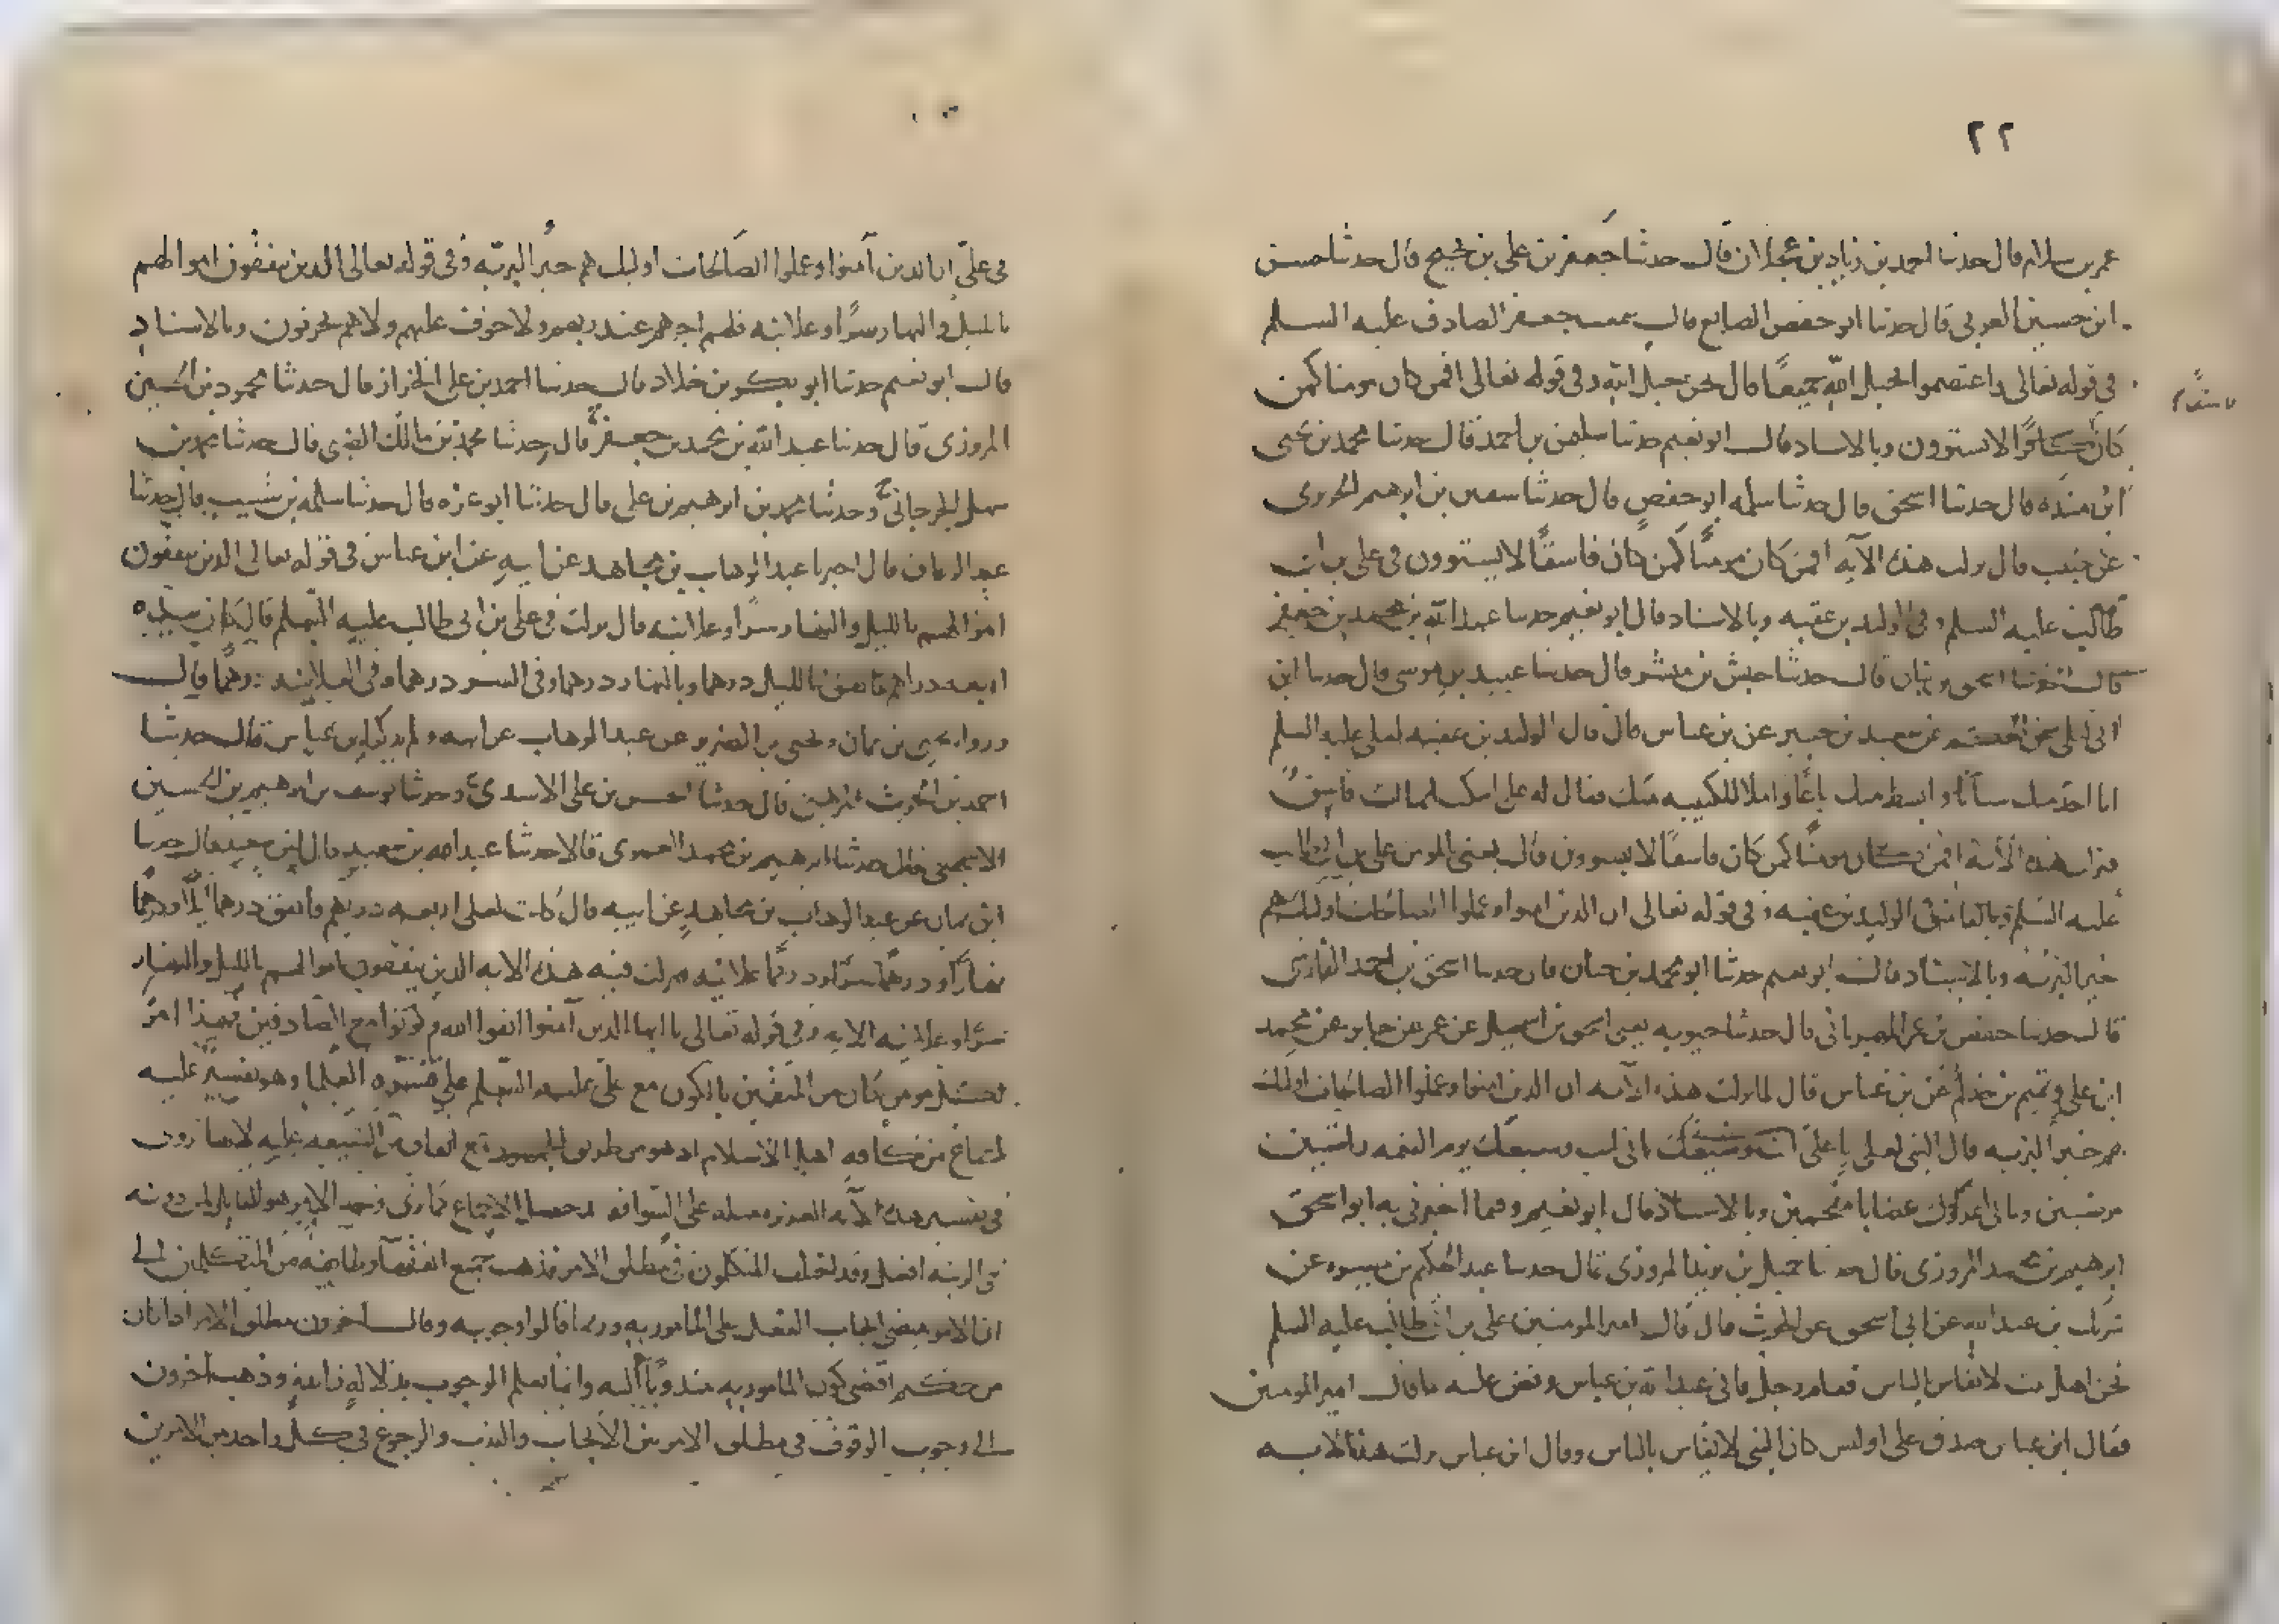 ٢٢
عمر بن سلام قال حدثنا احمد بن زياد بن عجلان قال حدثنا جعفر بن علي بن نجيح قال حدثنا حسن
ابن حسين العرني قال حدثنا ابو حفص الصايغ قال سمعت جعفر الصادق عليه السلم
في قوله تعالى واعتصموا بحبل الله جميعا قال نحن حبل الله وفي قوله تعالى افمن كان مومنا كمن
كان فاسقا لا يستوون وبالاسناد قال ابو نعيم حدثنا سليمن بن احمد قال حدثنا محمد بن يحيى
ابن منده قال حدثنا اسحق قال حدثنا سلمه ابو حفص قال حدثنا سفين بن ابرهيم الحريري
عن قال نزلت هذه الآيه افمن كان مومنا كمن كان فاسقا لا يستوون في علي بن ابي
طالب عليه السلم وفي الوليد بن عقبه وبالاسناد قال ابو نعيم حدثنا عبد الله بن محمد بن جعفر
قال حدثنا اسحق بن بنان قال حدثنا حبيش بن مبشر قال حدثنا عبيد بن موسى قال حدثنا ابن
ابي ليلى عن الحكم عن سعيد بن جبير عن بن عباس قال قال الوليد بن عقبه لعلي عليه السلم
انا احد منك سنانا وابسط منك لسانا واملا للكتيبه منك فقال له علي اسكت انت فاسق
فنزلت هذه الآية افمن كان مومنا كمن كان فاسقا لا يستوون قال يعني بالمومن علي بن ابي طالب
عليه السلم وبالفاسق الوليد بن عقبه وفي قوله تعالى ان الذين امنوا وعملوا الصالحات اوليك هم
خير البريه وبالاسناد قال ابو نعيم حدثنا ابو محمد بن حيان قال حدثنا اسحق بن احمد الفارسي
قال حدثنا حفص بن عمر المهرقاني قال حدثنا حيويه يعني اسحق بن اسمعيل عن عمر عن جابر عن محمد
ابن علي وتميم بن حذلم عن بن عباس قال لما نزلت هذه الآيه ان الذين امنوا وعملوا الصالحات اوليك
هم خير البريه قال النبي لعلي يا علي انت وشيعتك تاتي انت وشيعتك يوم القيمه راضيين
مرضيين وياتي عدوك غضابا مقمحين وبالاسناد قال ابو نعيم وفيما اخبرني به ابو اسحق
ابرهيم بن محمد المروزي قال حدثنا جميل بن يزيد المروزي قال حدثنا عبد الحكيم بن ميسره عن
شريك بن عبد الله عن ابي اسحق عن الحرث قال قال امير المومنين علي بن ابي طالب عليه السلم
نحن اهل بيت لا نقاس بالناس فقام رجل فاتى عبد الله بن عباس وقص عليه ما قال امير المومنين
فقال ابن عباس صدق علي اوليس كان النبي لا يقاس بالناس وقال ابن عباس نزلت هذه الآيه
في علي ان الذين آمنوا وعملوا الصالحات اوليك هم خير البريّه وفي قوله تعالى الذين ينفقون اموالهم
بالليل والنهار سرّا وعلانيه فلهم اجرهم عند ربهم ولا خوف عليهم ولا هم يحزنون وبالاسناد
قال ابو نعيم حدثنا ابو بكر بن خلاد قال حدثنا احمد بن علي الخزاز قال حدثنا محمود بن الحسين
المروزي قال حدثنا عبد الله بن محمد بن جعفر قال حدثنا محمد بن مالك الضبي قال حدثنا محمد بن
سهل الجرجاني وحدثنا محمد بن ابرهيم بن علي قال حدثنا ابو عزه قال حدثنا سلمه بن شبيب قال حدثنا
عبد الرزاق قال اخبرنا عبد الوهاب بن مجاهد عن ابيه عن ابن عباس في قوله تعالى الذين ينفقون
اموالهم بالليل والنهار سرّا وعلانيه قال نزلت في علي بن ابي طالب عليه السلم قال كان
اربعه دراهم فانفق بالليل درهما وبالنهار درهما وفي السر درهما وفي العلانيه درهما قال
ورواه يحيى بن يمان ويحيى بن الضريس عن عبد الوهاب عن ابيه ولم يذكر ابن عباس قال حدثنا
احمد بن الحرث قال حدثنا الحسن بن علي الاسدي وحدثنا يوسف بن ابرهيم بن الحسين
قال حدثنا ابرهيم بن محمد العمري قالا حدثنا عبد الله بن سعيد قال حدثنا
ابن يمان عن عبد الوهاب بن مجاهد عن ابيه قال كانت لعلي اربعه دراهم فانفق درهما ليلا ودرهما
نهارا ودرهما سرّا ودرهما علانيه فنزلت فيه هذه الآيه الذين ينفقون اموالهم بالليل والنهار
سرّا وعلانيه الآيه وفي قوله تعالى يا ايها الذين آمنوا اتقوا الله وكونوا مع الصادقين فهذا امر
لكل مومن كان من المتقين بالكون مع علي عليه السلم على العلما وهو تفسير عليه
اجماع من كافه اهل الاسلام اذ هو من طريق الجمهور مع اتفاق من الشيعه عليه لانهما
في تفسير هذه الآيه العزيزه على التوافق فحصل الاجماع
في الرتبه افضل وقد اختلف المتكلمون في مطلق الامر فذهب جميع الفقها وطايفه من المتكلمين الى
ان الامر يقتضي ايجاب الفعل على المامور به وربما قالوا وجوبه وقال آخرون مطلق الامر اذا كان
من حكيم اقتضى كون المامور به مندوبا اليه وانما يعلم الوجوب بدلاله زايده وذهب آخرون
الى وجوب الوقوف في مطلق الامر بين الايجاب والندب والرجوع في كل واحد من الامرين